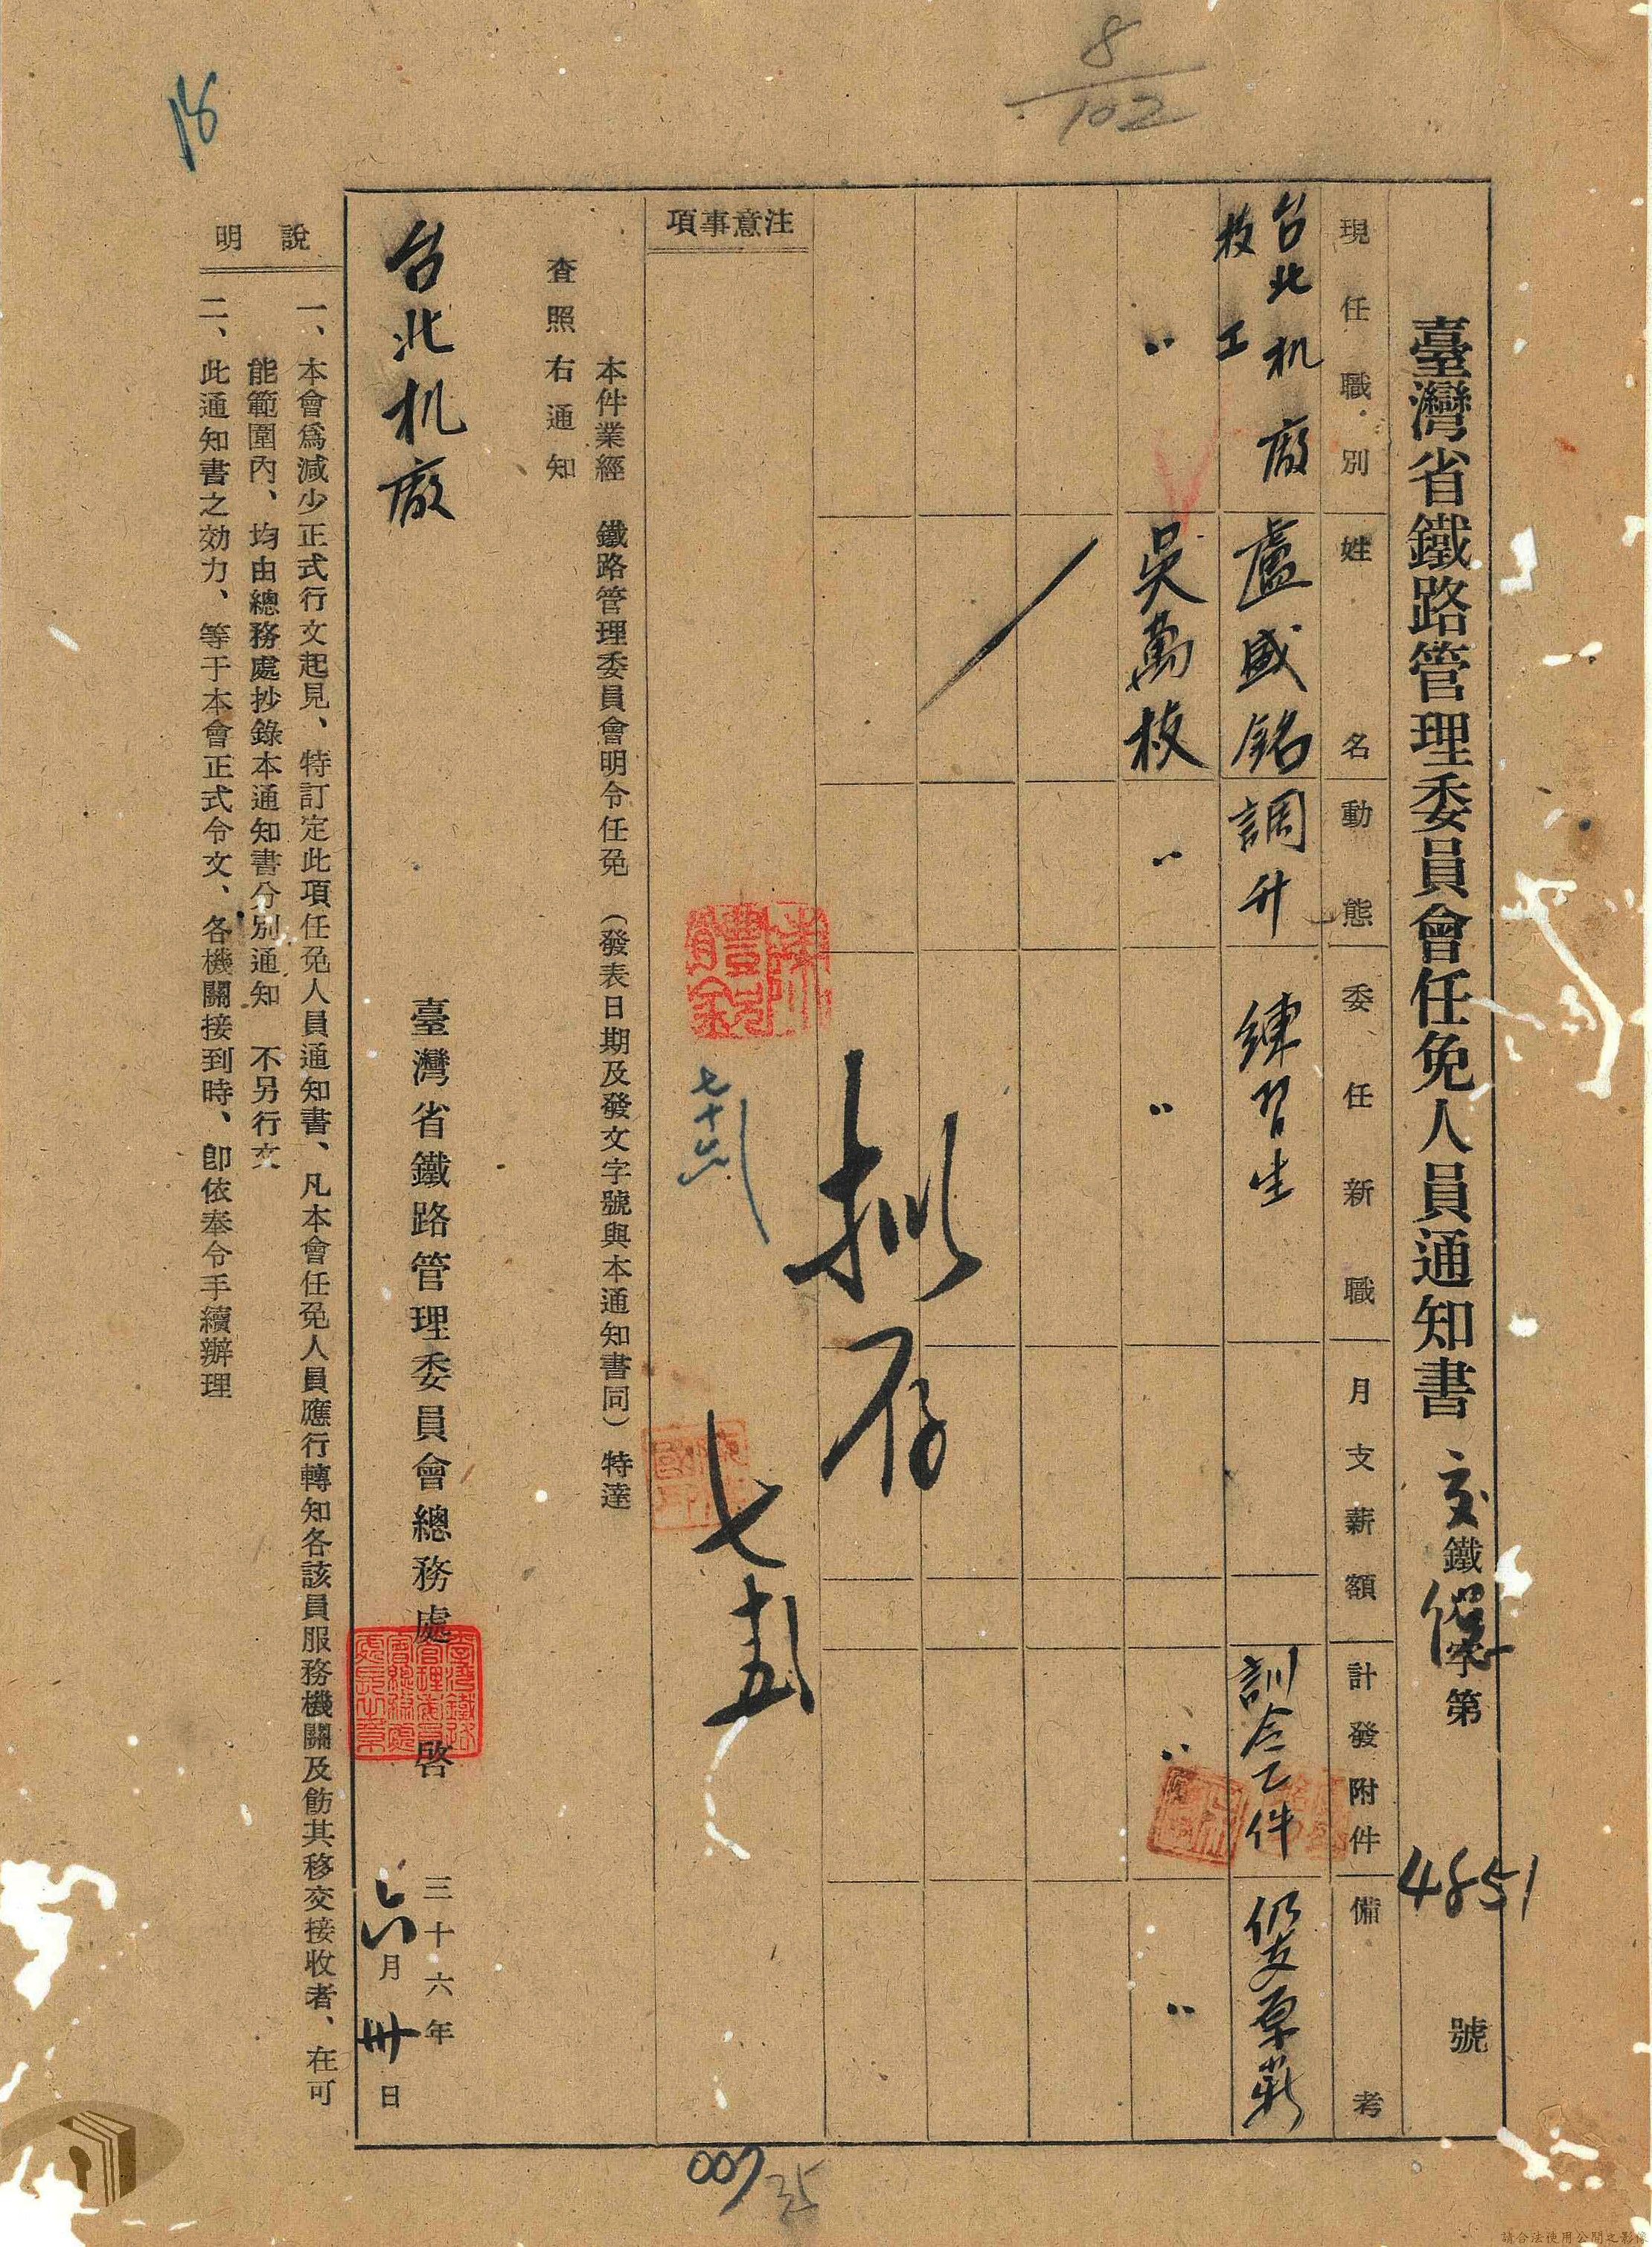 8/102
18
臺灣省鐵路管理委員會任免人員通知書 交鐵人字第4851號
現任職別
姓名
動態
委任新職
月支薪額
計發附件
備考
台北机廠
技工
盧盛銘
調升
練習生
訓令乙件
仍支原薪
〃
吳萬枝
〃
〃
〃
〃
擬存
七十五
注意事項
本件業經 鐵路管理委員會明令任免 (發表日期及發文字號與本通知書同)特達
查照右通知
台北机廠
臺灣省鐵路管理委員會總務處 啓
三十六年
六月卅日
說明
一、本會爲減少正式行文起見、特訂定此項任免人員通知書、凡本會任免人員應行轉知各該員服務機關及飭其移交接收者、在可
能範圍內、均由總務處抄錄本通知書分別通知 不另行文
二、此通知書之効力、等于本會正式令文、各機關接到時、卽依奉令手續辦理
007
35
請合法使用公開之影像